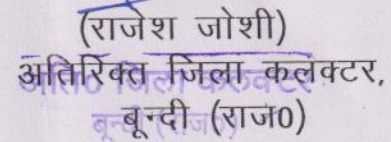 (राजेश जोशी)
अतिरिक्त जिला कलक्टर,
बून्दी (राज0)